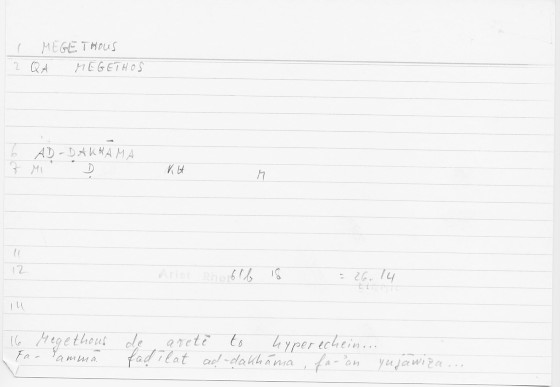 1 MEGETHOUS
2 QA MEGETHOS
6 AḌ-ḌAKHĀMA
7 M1 Ḍ KH M
11
12 61b 18 = 26.14
14
16 Megethous de aretē to hyperechein...
Fa-'ammā faḍīlat aḍ-ḍakhāma, fa-'an yujāwiza...